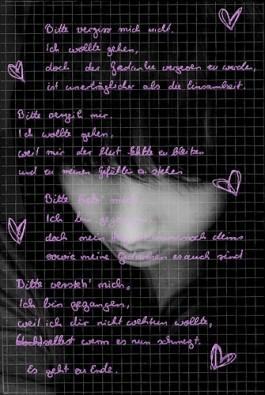 Bitte vergiss mich nicht.
Ich wollte gehen,
doch der Gedanke vergessen zu werden,
ist unerträglicher als die Einsamkeit.
Bitte verzeih mir.
Ich wollte gehen,
weil mir der Mut fehlte zu bleiben
und zu meinen Gefühlen zu stehen
Bitte mich
Ich bin
doch mein deins
sowie meine Gedanken es auch sind
Bitte versteh' mich,
Ich bin gegangen,
weil ich dir nicht wehtun wollte,
selbst wenn es nun schmerzt.
Es geht zu Ende.